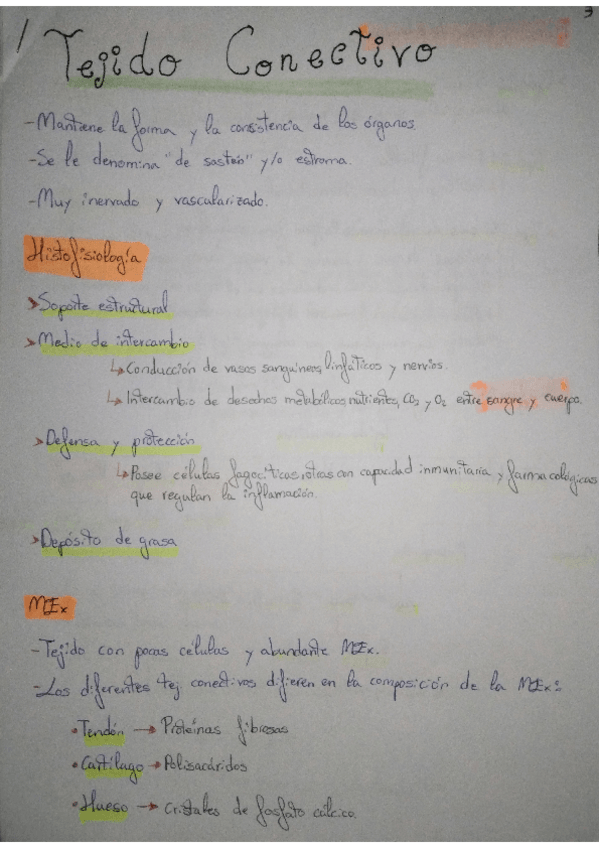 3
Tejido Conectivo
-Mantiene la forma y la consistencia de los órganos.
-Se le denomina "de sostén" y/o estroma.
-Muy inervado y vascularizado.
Histofisiología
> Soporte estructural
> Medio de intercambio
↳ Conducción de vasos sanguíneos, linfáticos y nervios.
↳ Intercambio de desechos metabólicos, nutrientes, CO₂ y O₂ entre sangre y cuerpo.
> Defensa y protección
↳ Posee células fagocíticas, otras con capacidad inmunitaria, y farmacológicas
que regulan la inflamación.
> Depósito de grasa
MEx
-Tejido con pocas células y abundante MEx.
-Los diferentes tej conectivos difieren en la composición de la MEx:
• Tendón → Proteínas fibrosas
• Cartílago → Polisacáridos
• Hueso → Cristales de fosfato cálcico.